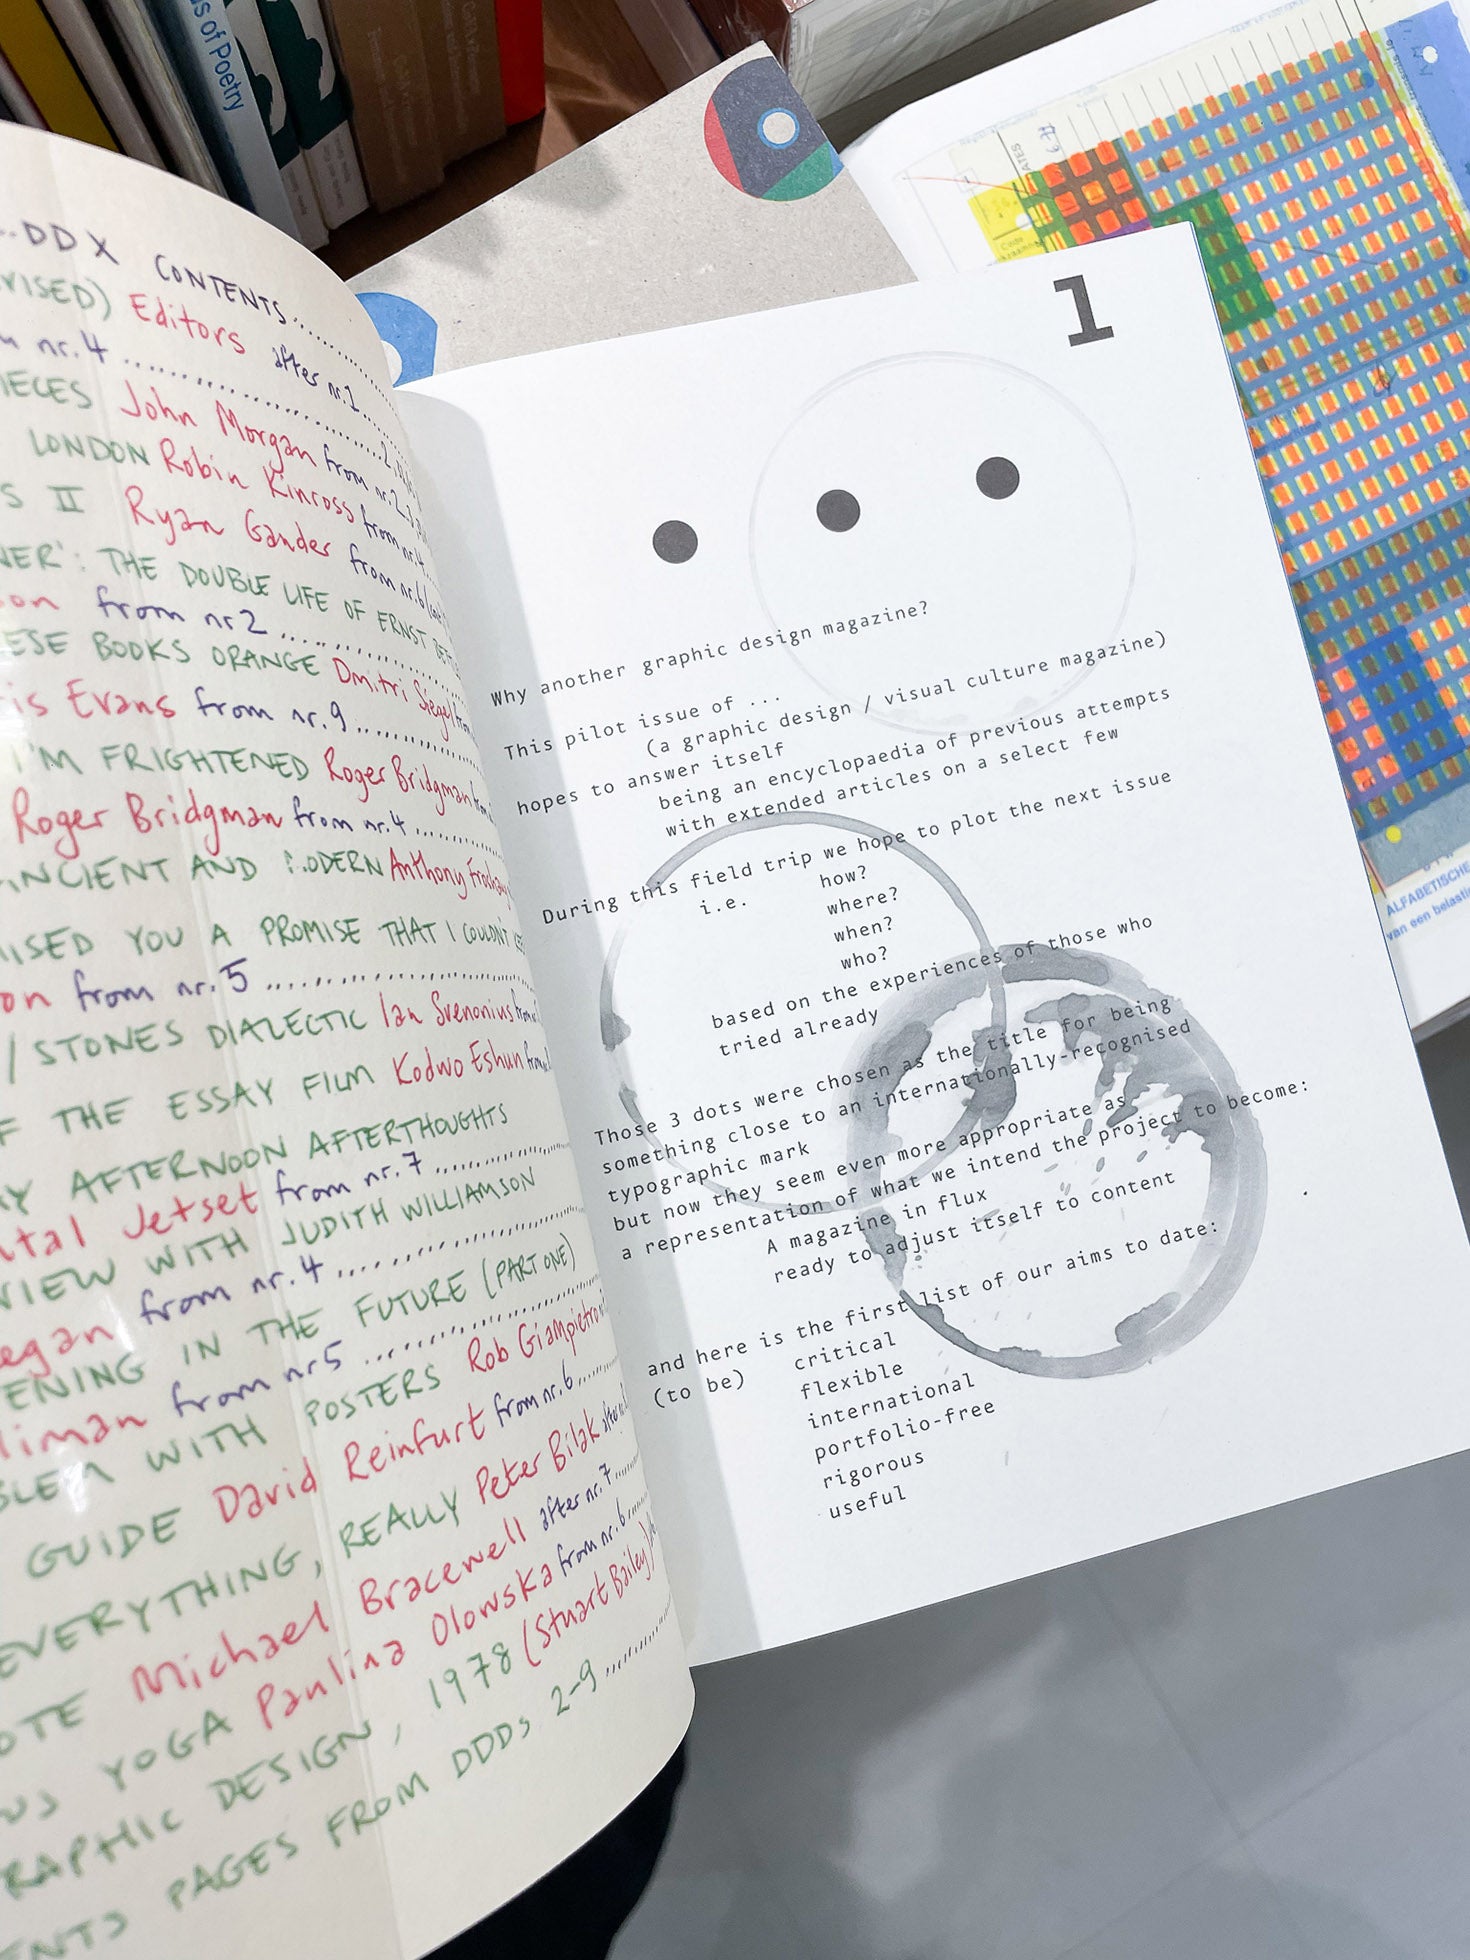 s of Poetry
DDX CONTENTS
VISED) Editors after nr.1
nr.4
IECES John Morgan from nr.2,3,
LONDON Robin Kinross from nr.4
S II Ryan Gander from nr.6
NER': THE DOUBLE LIFE OF ERNST
on from nr2
ESE BOOKS ORANGE Dmitri Siegel
is Evans from nr.9
I'M FRIGHTENED Roger Bridgman
Roger Bridgman from nr.4
ANCIENT AND MODERN Anthony
ISED YOU A PROMISE THAT I COULDN'T
on from nr.5
/ STONES DIALECTIC Ian Svenonius
F THE ESSAY FILM Kodwo Eshun
AY AFTERNOON AFTERTHOUGHTS
ntal Jetset from nr.7
VIEW WITH JUDITH WILLIAMSON
egan from nr.4
ENING IN THE FUTURE (PART ONE)
liman from nr5
BLEM WITH POSTERS Rob Giampietro
GUIDE David Reinfurt from nr.6
EVERYTHING, REALLY Peter Bilak
OTE Michael Bracewell after nr.7
YOGA Paulina Olowska from nr.6
RAPHIC DESIGN, 1978 (Stuart Bailey)
ENTS PAGES FROM DDDs 2-9
1
Why another graphic design magazine?
This pilot issue of ...
(a graphic design / visual culture magazine)
hopes to answer itself
being an encyclopaedia of previous attempts
with extended articles on a select few
During this field trip we hope to plot the next issue
i.e. how?
where?
when?
who?
based on the experiences of those who
tried already
Those 3 dots were chosen as the title for being
something close to an internationally-recognised
typographic mark
but now they seem even more appropriate as
a representation of what we intend the project to become:
A magazine in flux
ready to adjust itself to content
and here is the first list of our aims to date:
(to be) critical
flexible
international
portfolio-free
rigorous
useful
ALFABETISCHE
van een belastin